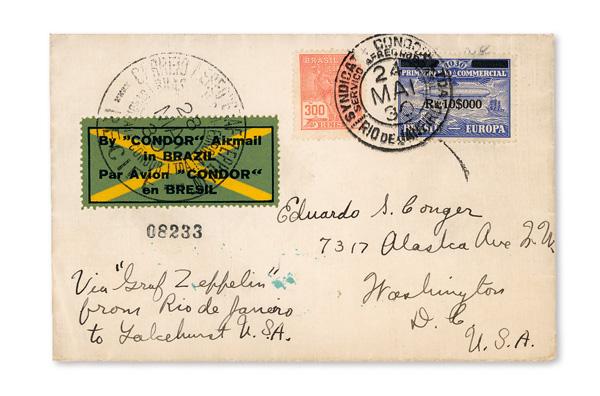 BRASIL
300
RÉIS
1930
PRIMEIRO COMMERCIAL
Rs.10$000
BRASIL - EUROPA
SYNDICATO CONDOR LTDA
SERVICO AEREO
24
MAI
30
RIO DE JANEIRO
CORREIO
28
By "CONDOR" Airmail
in BRAZIL
Par Avion "CONDOR"
en BRESIL
08233
Eduardo S. Conger
7317 Alaska Ave N.W.
Washington
D.C
U.S.A.
Via "Graf Zeppelin"
from Rio de Janeiro
to Lakehurst U.S.A.